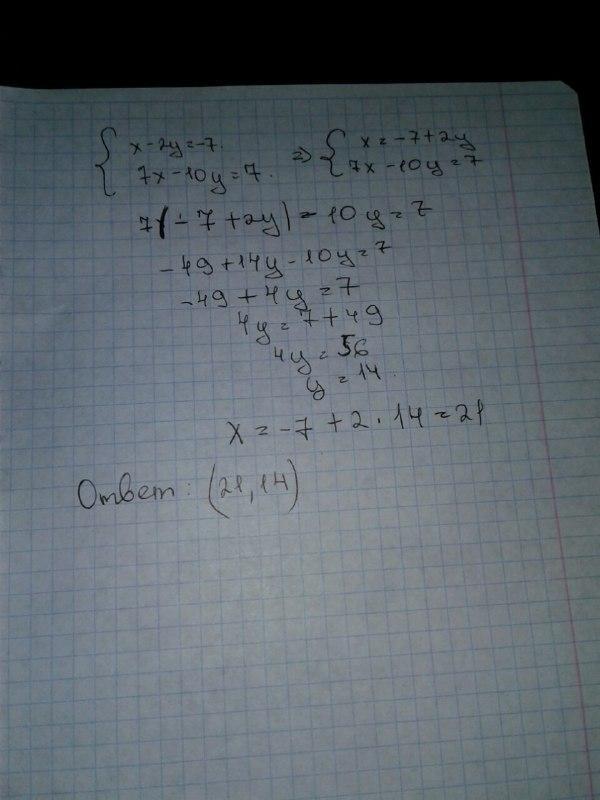 { x-2y=-7. => { x=-7+2y
{ 7x-10y=7. { 7x-10y=7
7(-7+2y)-10y=7
-49+14y-10y=7
-49+4y=7
4y=7+49
4y=56
y=14.
x=-7+2·14=21
Ответ: (21,14)